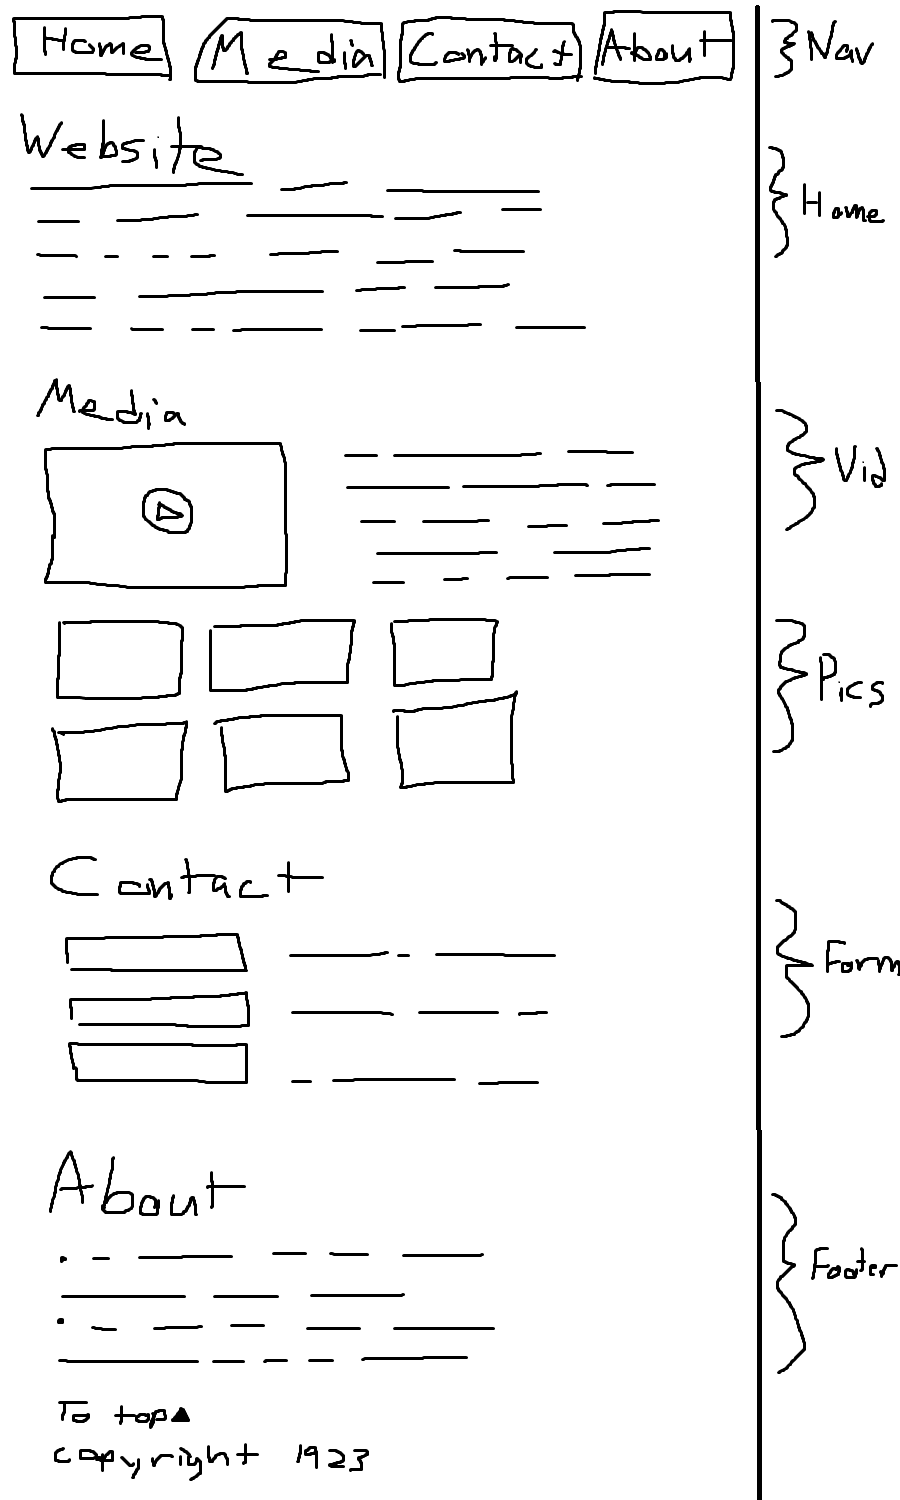 Home Media Contact About
Nav
Website
Home
Media
Vid
Pics
Contact
Form
About
Footer
To top▲
copyright 1923